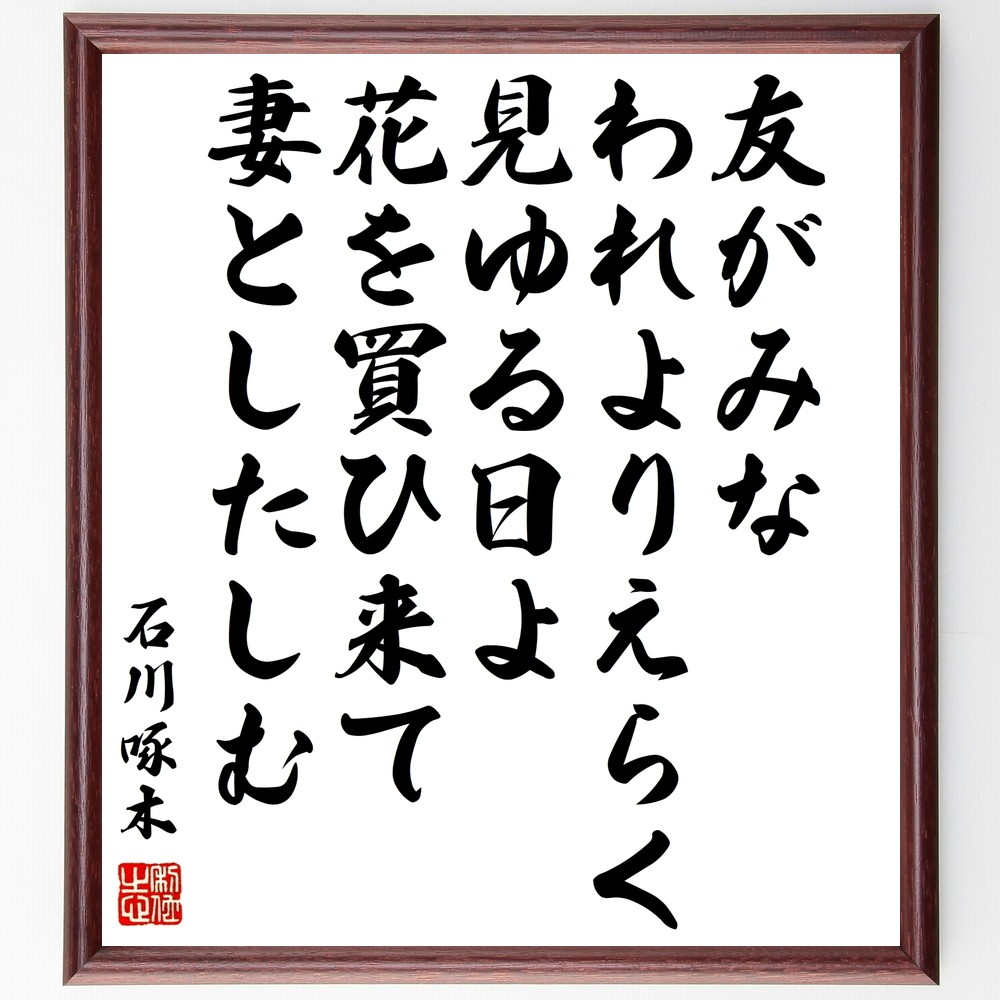 友がみな
われよりえらく
見ゆる日よ
花を買ひ来て
妻としたしむ
石川啄木